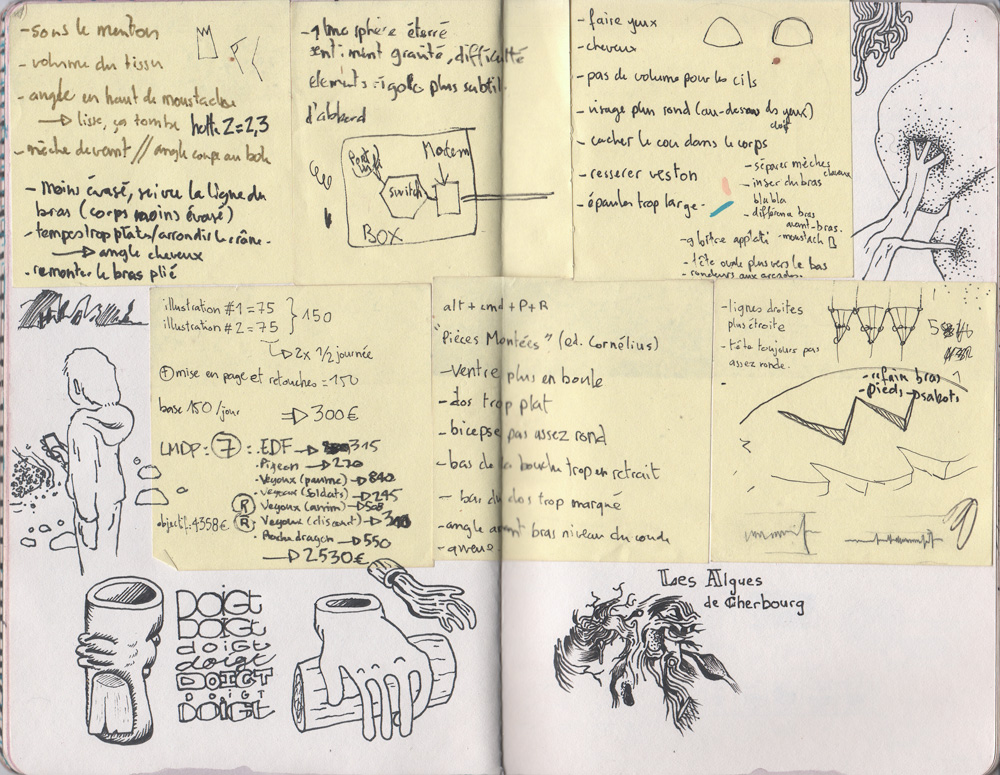 - sous le menton
- volume du tissu
- angle en haut de moustache
→ lisse, ça tombe
- mèche devant // angle coupe au bol
- Moins évasé, suivre la ligne du
bras (corps moins évasé)
- tempes trop plates/arrondir le crâne.
→ angle cheveux
- remonter le bras plié
sentiment gravité, difficulté
plus subtil.
d'abbord
Modem
switch
BOX
- faire yeux
- cheveux
- pas de volume pour les cils
- visage plus rond (au-dessus des yeux)
- cacher le cou dans le corps
- resserer veston
- épaules trop large.
- séparer mèches
cheveux
bras
blabla
bras
avant-bras.
- moustach
- tête ovale plus vers le bas
illustration #1 = 75
illustration #2 = 75
150
2x 1/2 journée
+ mise en page et retouches = 150
base 150/jour
⇒ 300€
LMDP: 7 : . EDF → 315
. Pigeon → 270
. Veyoux (paume) → 840
. Veyoux (soldats) → 245
R Veyoux (anim) →
objectif: 4358€ R Veyoux (discant) →
dragon → 550
→ 2530€
alt + cmd + P + R
"Pièces Montées" (ed. Cornélius)
- ventre plus en boule
- dos trop plat
- biceps pas assez rond
- bas de la bouche trop en retrait
- bas du dos trop marqué
- angle avant bras niveau du coude
- lignes droites
plus étroite
- tête toujours pas
assez ronde.
- refaire bras
- pieds → sabots
DOIGT
DOIGT
doigt
doigt
DOIGT
DOIGT
DOIGT
Les Algues
de Cherbourg